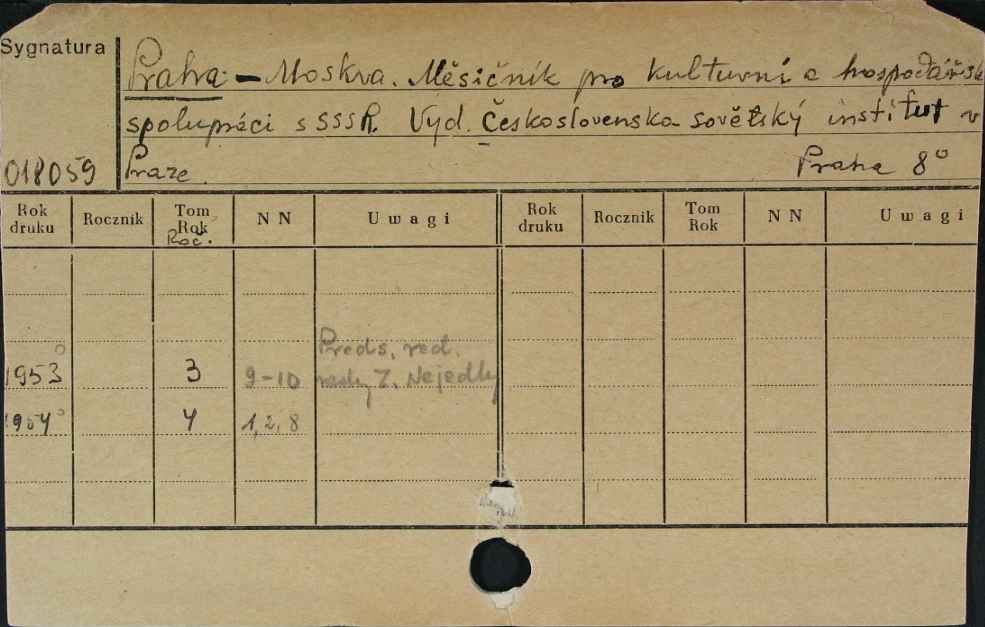 Sygnatura
Praha - Moskva. Měsíčník pro kulturní a hospodářsk
spolupráci s SSSR. Vyd. Československo sovětský institut v
018059 Praze. Praha 8°
Rok druku Rocznik Tom Rok NN Uwagi Rok druku Rocznik Tom Rok NN Uwagi
Roč.
Preds. red.
1953° 3 9-10 rady Z. Nejedlý
1954° 4 1, 2, 8